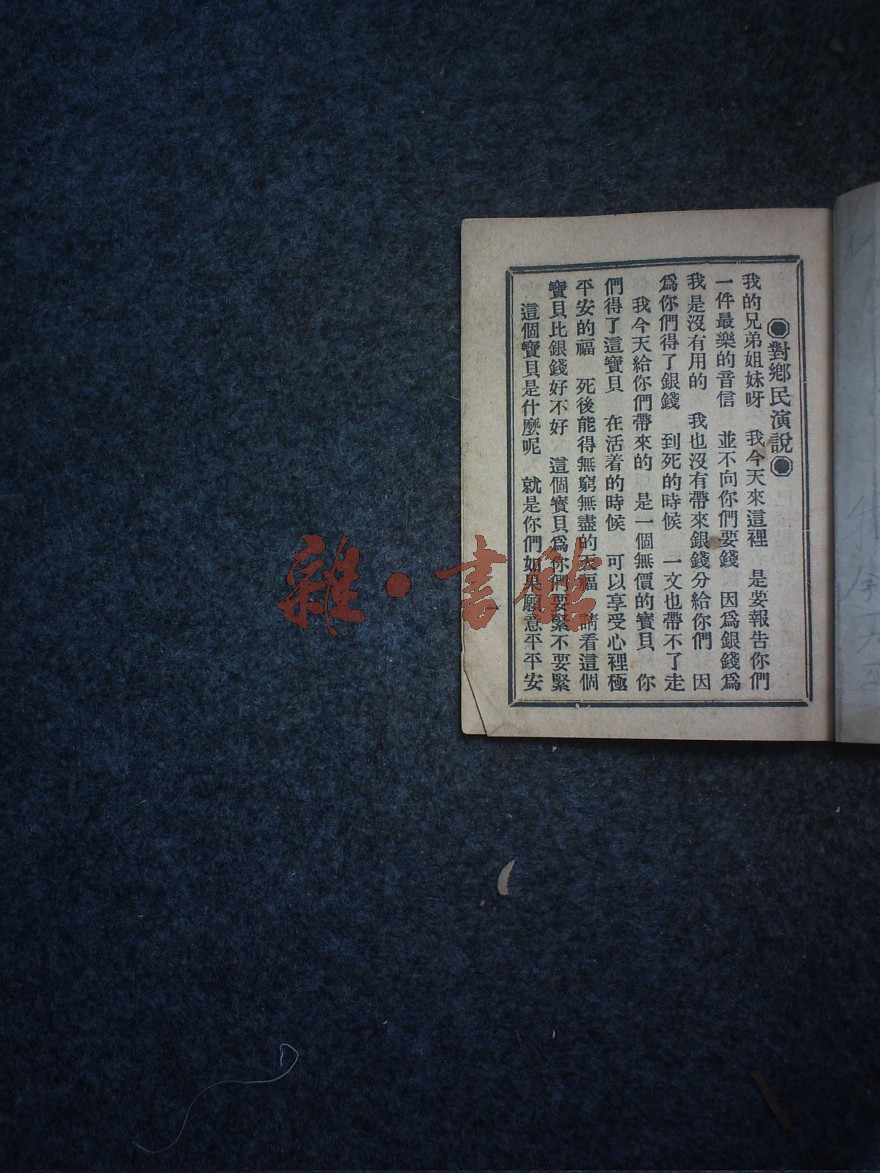 ◉對鄉民演說◉
我的兄弟姐妹呀 我今天來這裡 是要報告你們
一件最樂的音信 並不向你們要錢 因爲銀錢爲
我是沒有用的 我也沒有帶來銀錢分給你們 因
爲你們得了銀錢 到死的時候 一文也帶不了走
我今天給你們帶來的 是一個無價的寶貝 你
們得了這寶貝 在活着的時候 可以享受心裡極
平安的福 死後能得無窮無盡的天福 請看這個
寶貝比銀錢好不好 這個寶貝爲你們要緊不要緊
這個寶貝是什麼呢 就是你們如果願意平平安
一
雜·書館